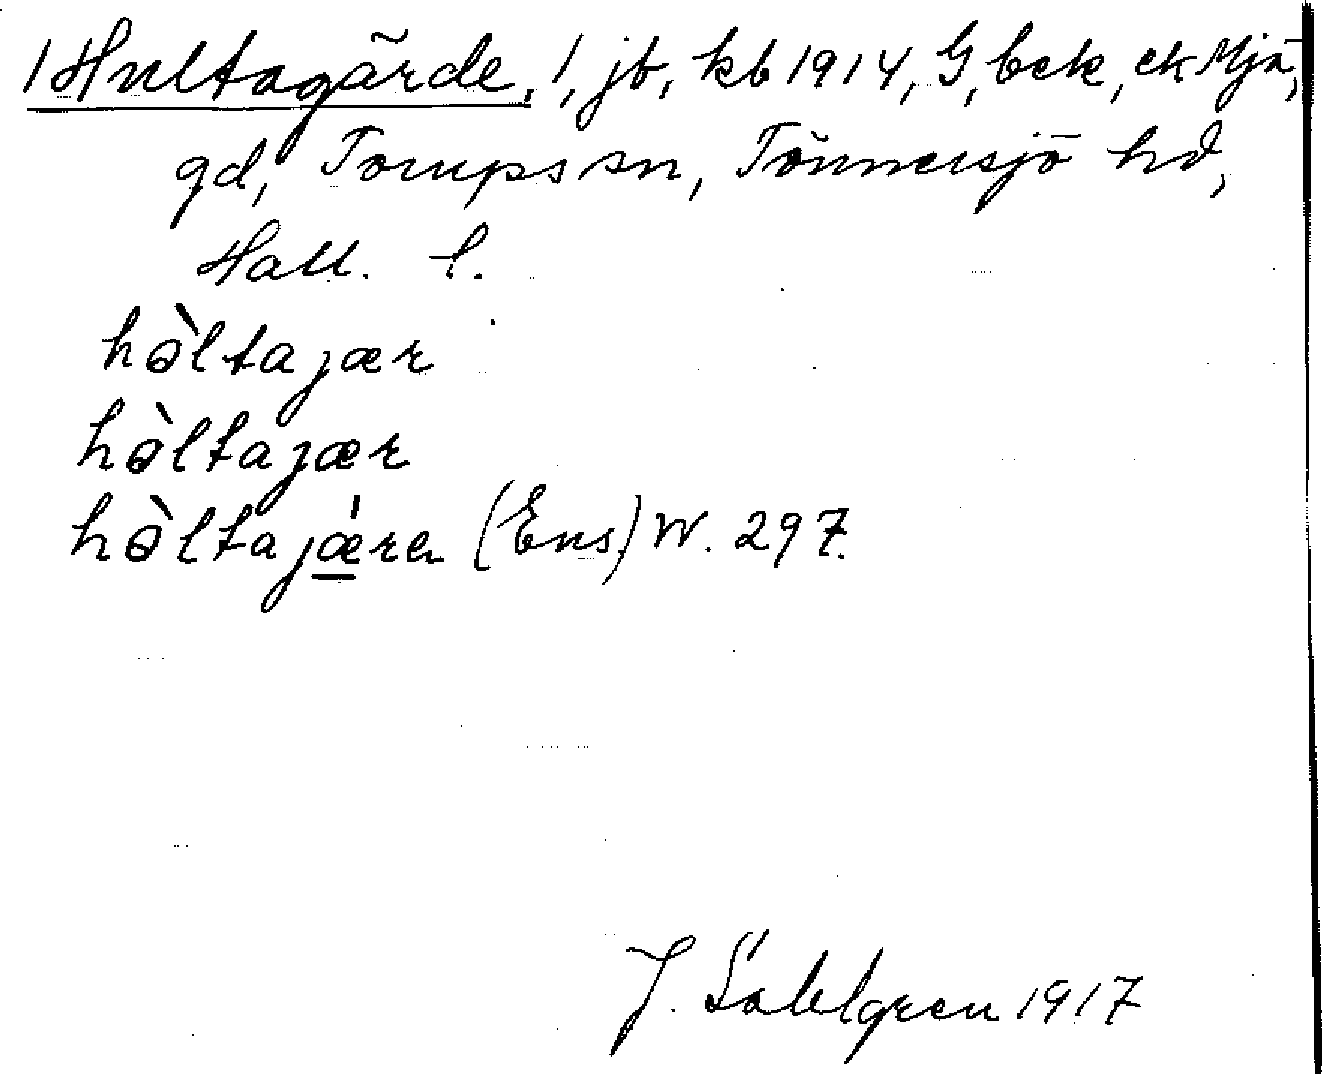 /Hultagärde, /, jb, kb 1914, G, bek, ek Mjä,
gd, Torups sn, Tönnersjö hd,
Hall. l.
hòltajær
hòltajær
hòltajǽra (Ens) W. 297.
J. Sahlgren 1917